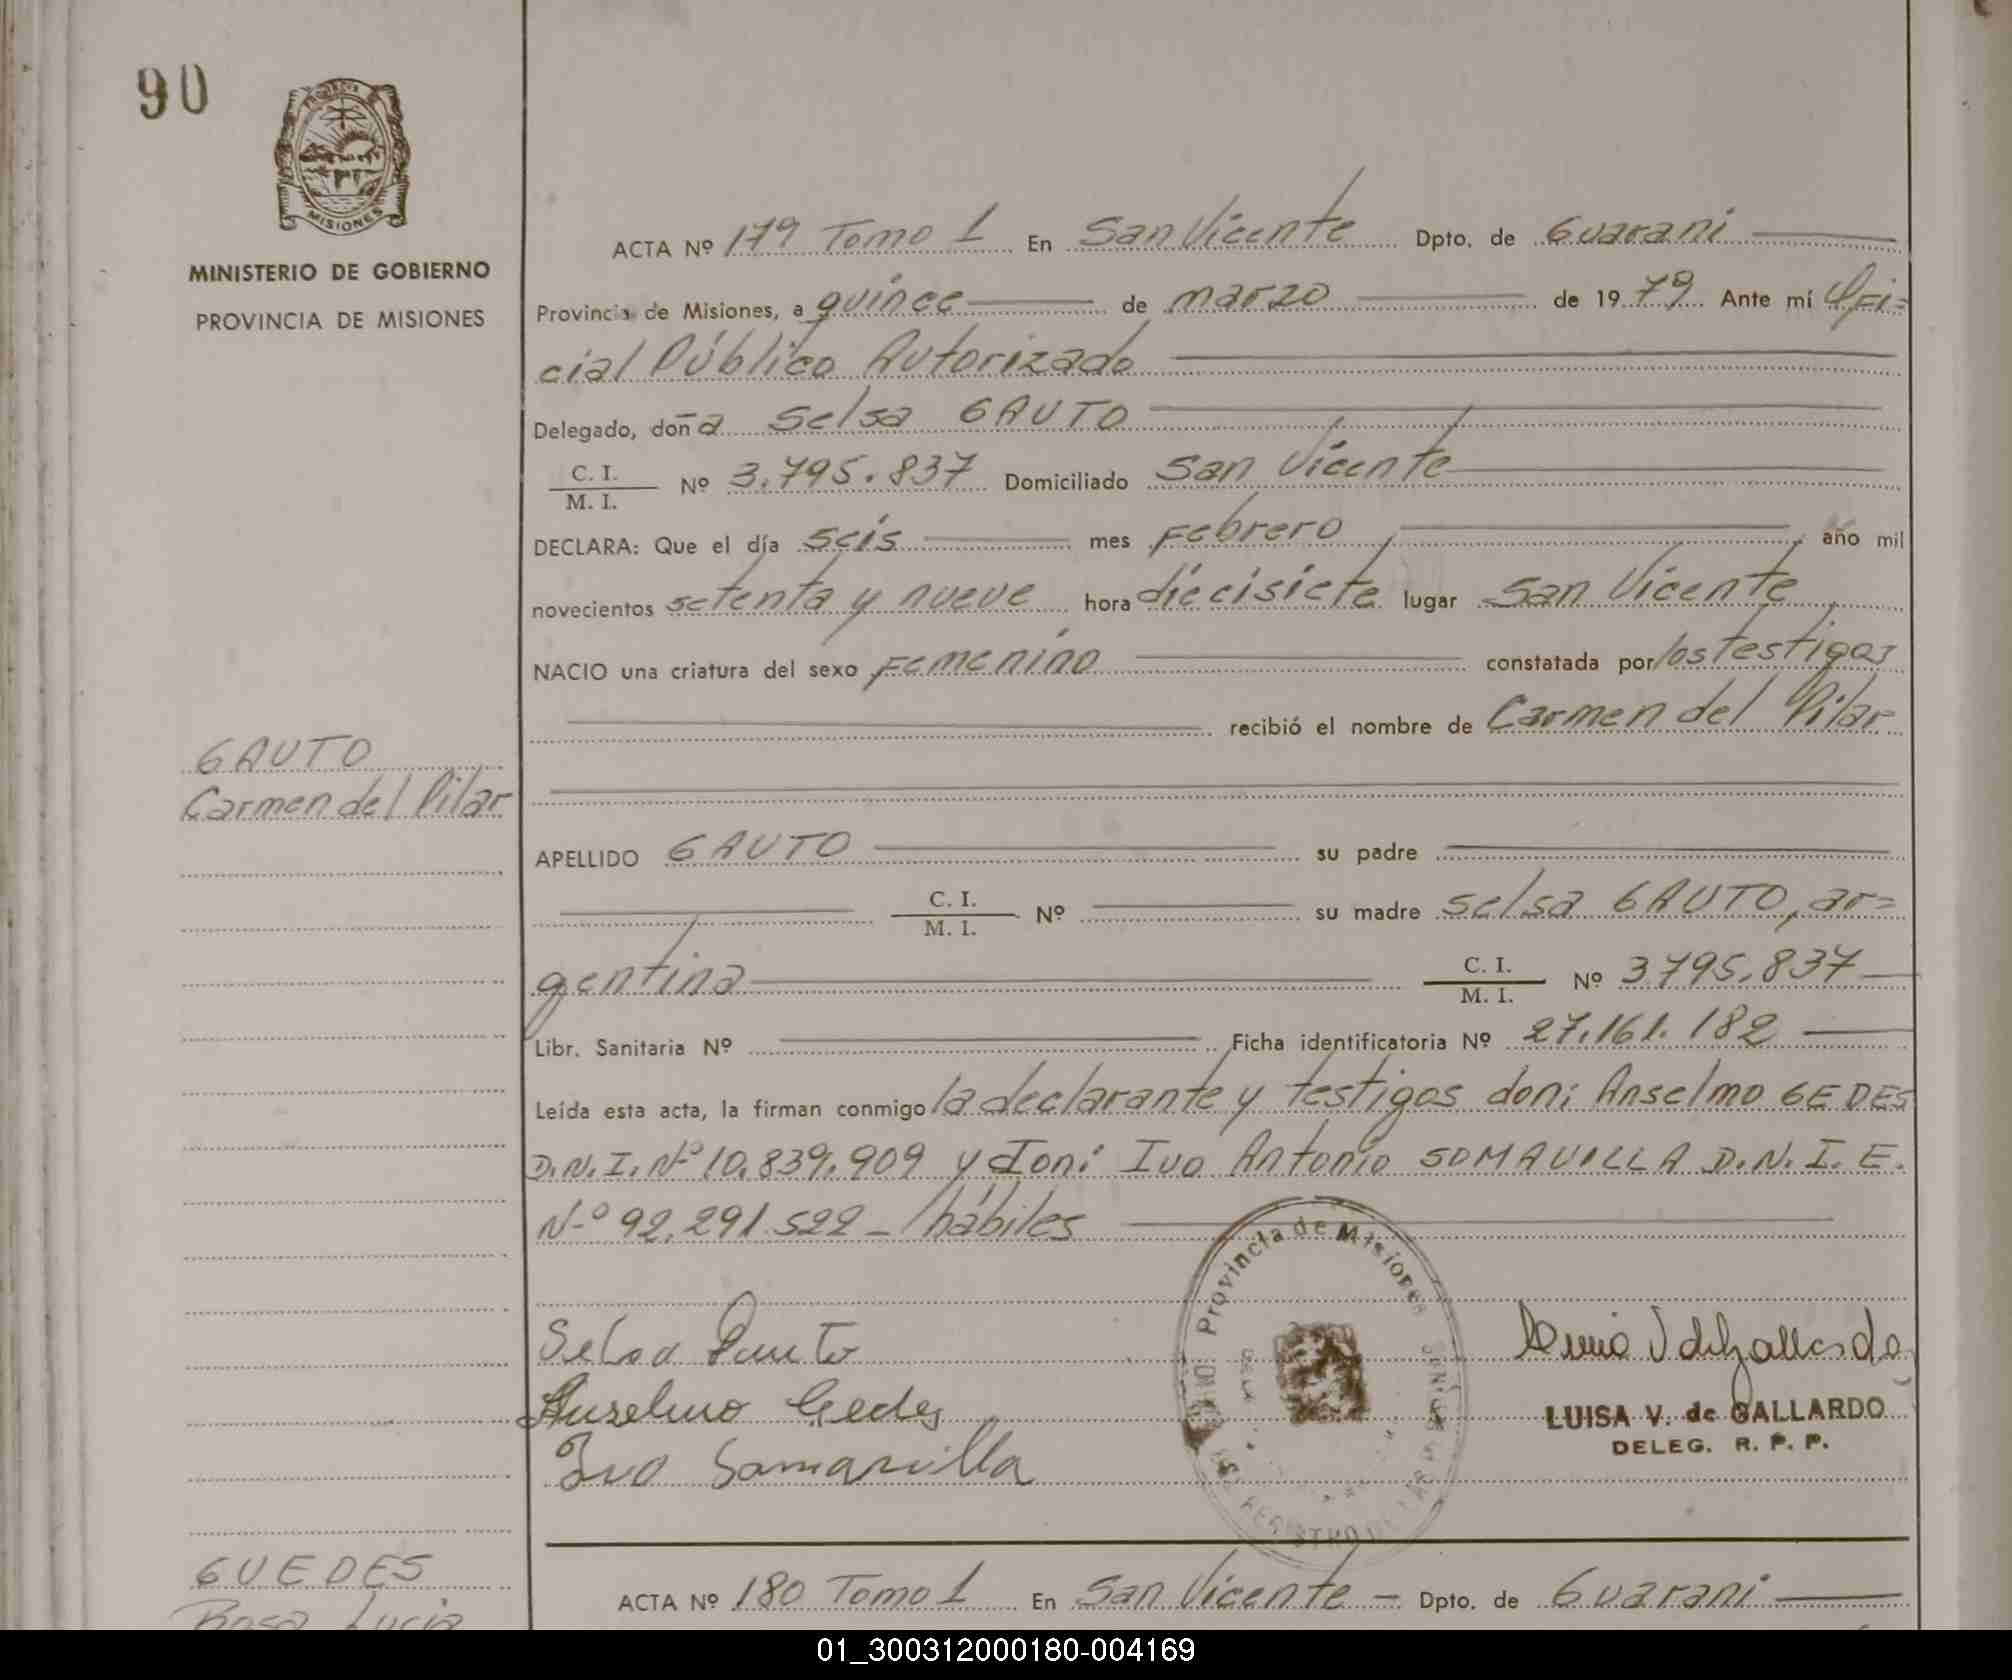 90
MISIONES
MINISTERIO DE GOBIERNO
PROVINCIA DE MISIONES
GAUTO
Carmen del Pilar
ACTA Nº 179 Tomo 1 En San Vicente Dpto. de Guarani
Provincia de Misiones, a quince de marzo de 1979 Ante mí Ofi=
cial Público Autorizado
Delegado, doña Selsa GAUTO
C. I. / M. I. Nº 3.795.837 Domiciliado San Vicente
DECLARA: Que el día seis mes Febrero año mil
novecientos setenta y nueve hora diecisiete lugar San Vicente
NACIO una criatura del sexo Femenino constatada por los testigos
recibió el nombre de Carmen del Pilar
APELLIDO GAUTO su padre
C. I. / M. I. Nº su madre Selsa GAUTO, ar=
gentina C. I. / M. I. Nº 3795.837
Libr. Sanitaria Nº Ficha identificatoria Nº 27.161.182
Leída esta acta, la firman conmigo la declarante y testigos don: Anselmo GEDES
D.N.I. Nº 10.839.909 y don: Ivo Antonio SOMAVILLA D.N.I.E.
Nº 92.291.522 - hábiles
Provincia de Misiones
Anselmo Gedes
Ivo Somavilla
LUISA V. de GALLARDO
DELEG. R. P. P.
GUEDES
Rosa Lucia
ACTA Nº 180 Tomo 1 En San Vicente - Dpto. de Guarani
01_300312000180-004169